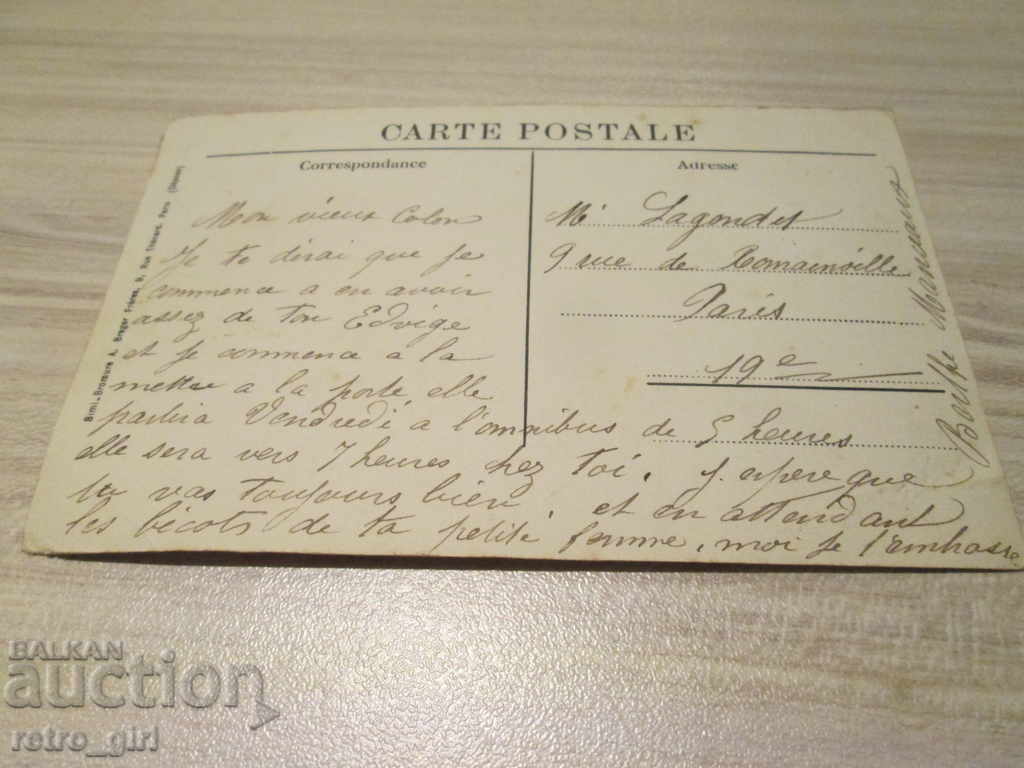 CARTE POSTALE
Correspondance
Adresse
Mon vieux Colon
Je te dirai que je
commence a en avoir
assez de ton Edvige
et je commence a la
mettre a la porte, elle
partira Vendredi a l'omnibus de 5 heures
elle sera vers 7 heures chez toi. j'espere que
tu vas toujours bien, et en attendant
les bécots de ta petite femme, moi je t'embrasse
Mr Lagondet
9 rue de Romainville
Paris
19e
Berthe
Bimi-Bromure A. Breger Frères, 9, Rue Thénard, Paris
BALKAN
auction
retro_girl